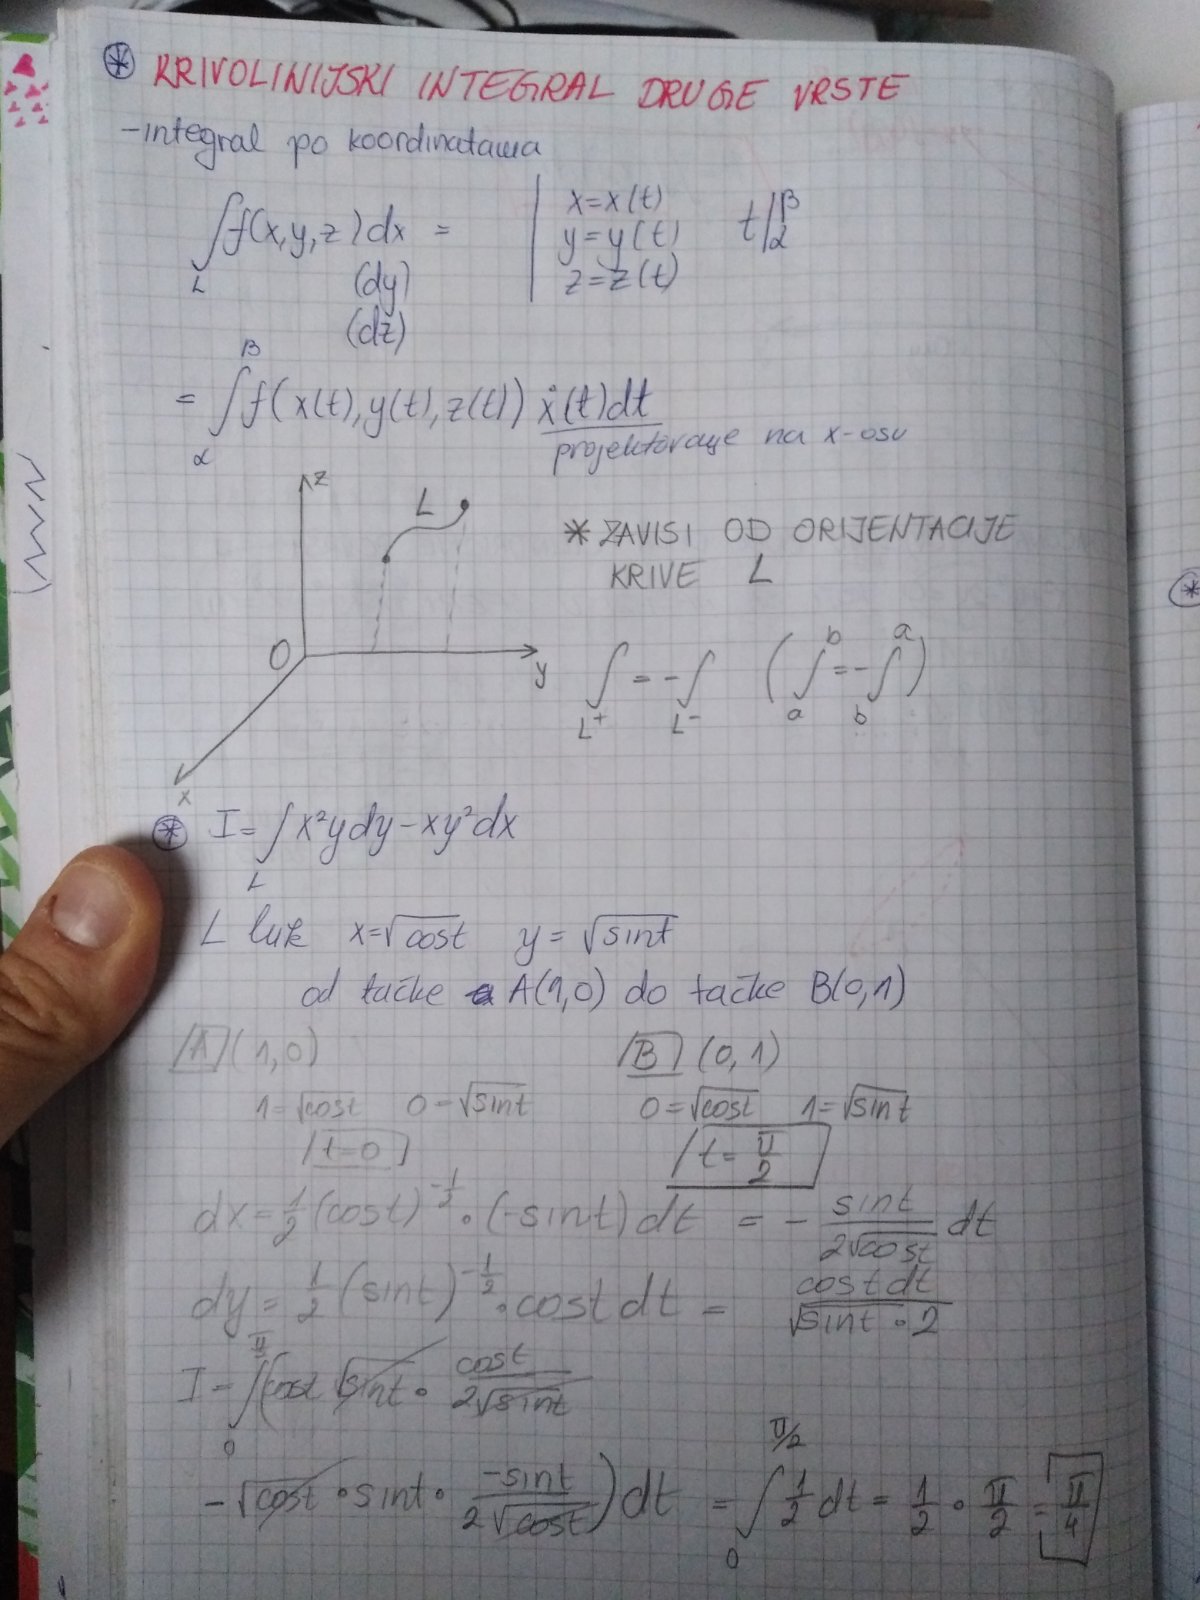 * KRIVOLINIJSKI INTEGRAL DRUGE VRSTE
-integral po koordinatama
∫_L f(x,y,z)dx = | x=x(t) t|_α^β
(dy) y=y(t)
(dz) z=z(t)
= ∫_α^β f(x(t),y(t),z(t)) ẋ(t)dt
projektovanje na x-osu
z
L
* ZAVISI OD ORIJENTACIJE
KRIVE L
O
y
x
∫_{L⁺} = -∫_{L⁻} (∫_a^b = -∫_b^a)
* I=∫_L x²ydy-xy²dx
L luk x=√cost y=√sint
od tačke A(1,0) do tačke B(0,1)
A (1,0) B (0,1)
1=√cost 0=√sint 0=√cost 1=√sint
t=0 t=π/2
dx=1/2(cost)^{-1/2}·(-sint)dt = -sint/(2√cost) dt
dy=1/2(sint)^{-1/2}·cost dt = cost dt/(√sint·2)
I=∫_0^{π/2}(cost √sint·cost/(2√sint)
-√cost·sint·(-sint)/(2√cost))dt = ∫_0^{π/2} 1/2 dt = 1/2·π/2 = π/4